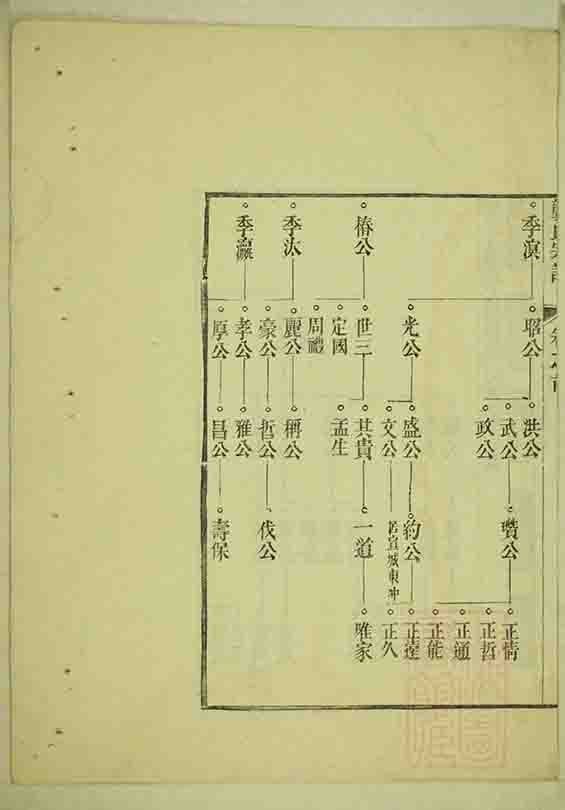 季溟
椿公
季汰
季瀛
昭公
光公
世三
定國
周禮
麗公
豪公
孝公
厚公
洪公
武公
政公
盛公
文公
其貴
孟生
稱公
哲公
雅公
昌公
瓚公
約公
居宜城東冲
一道
伐公
壽保
正情
正哲
正通
正能
正達
正久
唯家